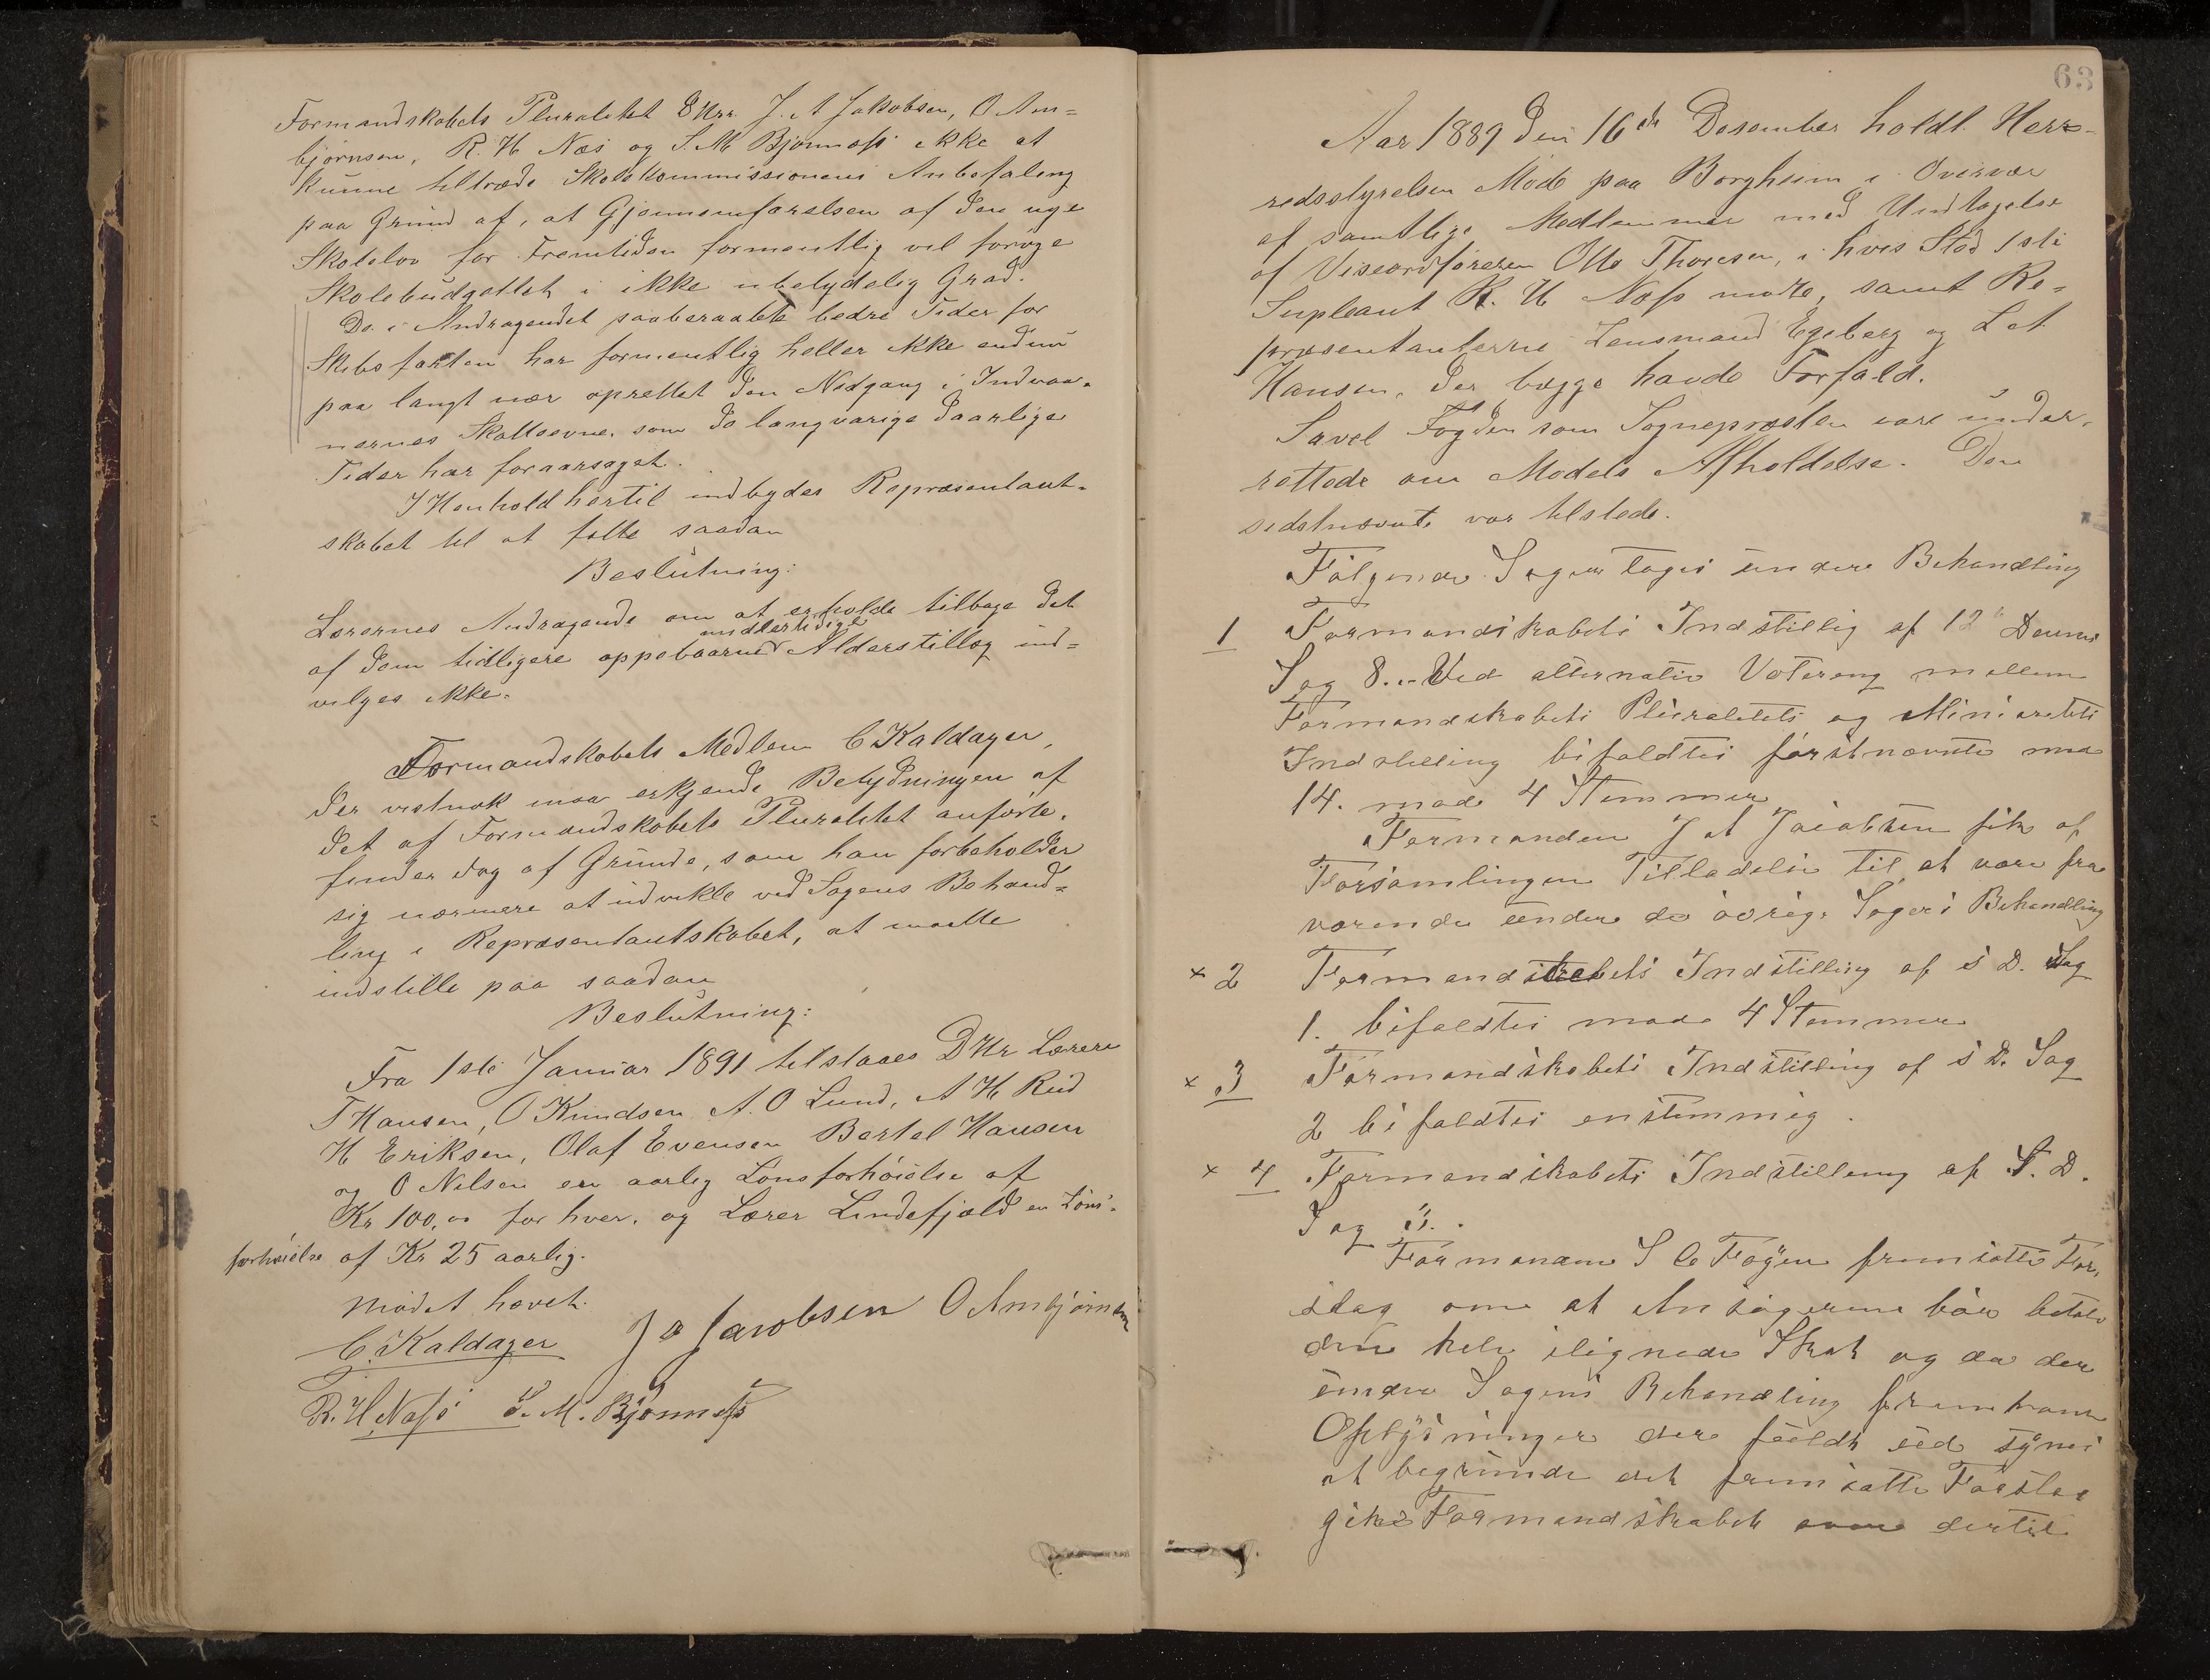 Formandskabets Pluralitet DHrr. J. A Jakobsen, O Am=
björnsen, R. H Næs og S. M Bjönnæss ikke at
kunne tiltræde Skolekommissionens Anbefaling
paa Grund af, at Gjennemförelsen af den nye
Skolelov for Fremtiden formentlig vil foröge
Skolebudgettet i ikke ubetydelig Grad.
De i Andragendet paaberaabte bedre Tider for
Skibsfarten har formentlig heller ikke endnu
paa langt nær oprettet den Nedgang i Indvaa=
nernes Skatteevne, som de langvarige daarlige
Tider har foraarsaget.
I Henhold hertil indbydes Repræsentant=
skabet til at fatte saadan
Beslutning:
Lærernes Andragende om at erholde tilbage det
af dem tidligere oppebaarne midlertidige Alderstillæg ind=
vilges ikke.
Formandskabets Medlem C Kaldager,
der vistnok maa erkjende Betydningen af
det af Formandskabets Pluralitet anförte,
finder dog af Grunde, som han forbeholder
sig nærmere at udvikle ved Sagens Behand=
ling i Repræsentantskabet, at maatte
indstille paa saadan
Beslutning:
Fra 1ste Januar 1891 tilstaaes DHr Lærere
T Hansen, O Knudsen A. O Lund, A H Rud
H Eriksen, Olaf Evensen Bertel Hansen
J O Nilsen en aarlig Lönsforhöielse af
Kr 100,00 for hver, og Lærer Lindefjeld en Löns=
forhöielse af Kr 25 aarlig.
Mödet hævet.
C. Kaldager J A Jacobsen O Ambjörnsen
R. H. Næss S. M. Bjönness
63
Aar 1889 den 16de Desember holdt Herre-
redsstyrelsen Möde paa Borgheim i Overvær
af samtlige Medlemmer med Undtagelse
af Viseordföreren Otto Thoresen, i hvis Sted 1ste
Supleant R. H Næss mödte, samt Re=
præsentanterne Lensmand Egeberg og L A
Hansen, der begge havde Forfald.
Savel Fogden som Sognepresten vare under-
rettede om Mödets Afholdelse. Den
sidstnævnte var tilstede.
Fölgende Sager toges under Behandling
1 Formandskabets Indstillig af 12 Dennes
Sag 8. Ved alternativ Votering mellem
Formandskabets Pluralitets og Minioritets
Indstilling bifaldtes förstnævnte med
14. mod 4 Stemmer
Formanden J A Jacobsen fik af
Forsamlingen Tilladelse til at være fra
værende under de övrige Sagers Behandling
× 2 Formandskabets Indstilling af s D. Sag
1. bifaldtes mod 4 Stemmer
× 3 Formandskabets Indstilling af s D. Sag
2 bifaldtes enstemmig.
× 4 Formandskabets Indstilling af S. D.
Sag 3.
Formanden S C Föyen fremsatte For,
slag om at Ansögerne bör betale
den hele ilignede Skat og da der
under Sagens Behandling fremkom
Oplysninger der fuldt ud synes
at begrunde det fremsatte Forslag
gik Formandskabet over dertil